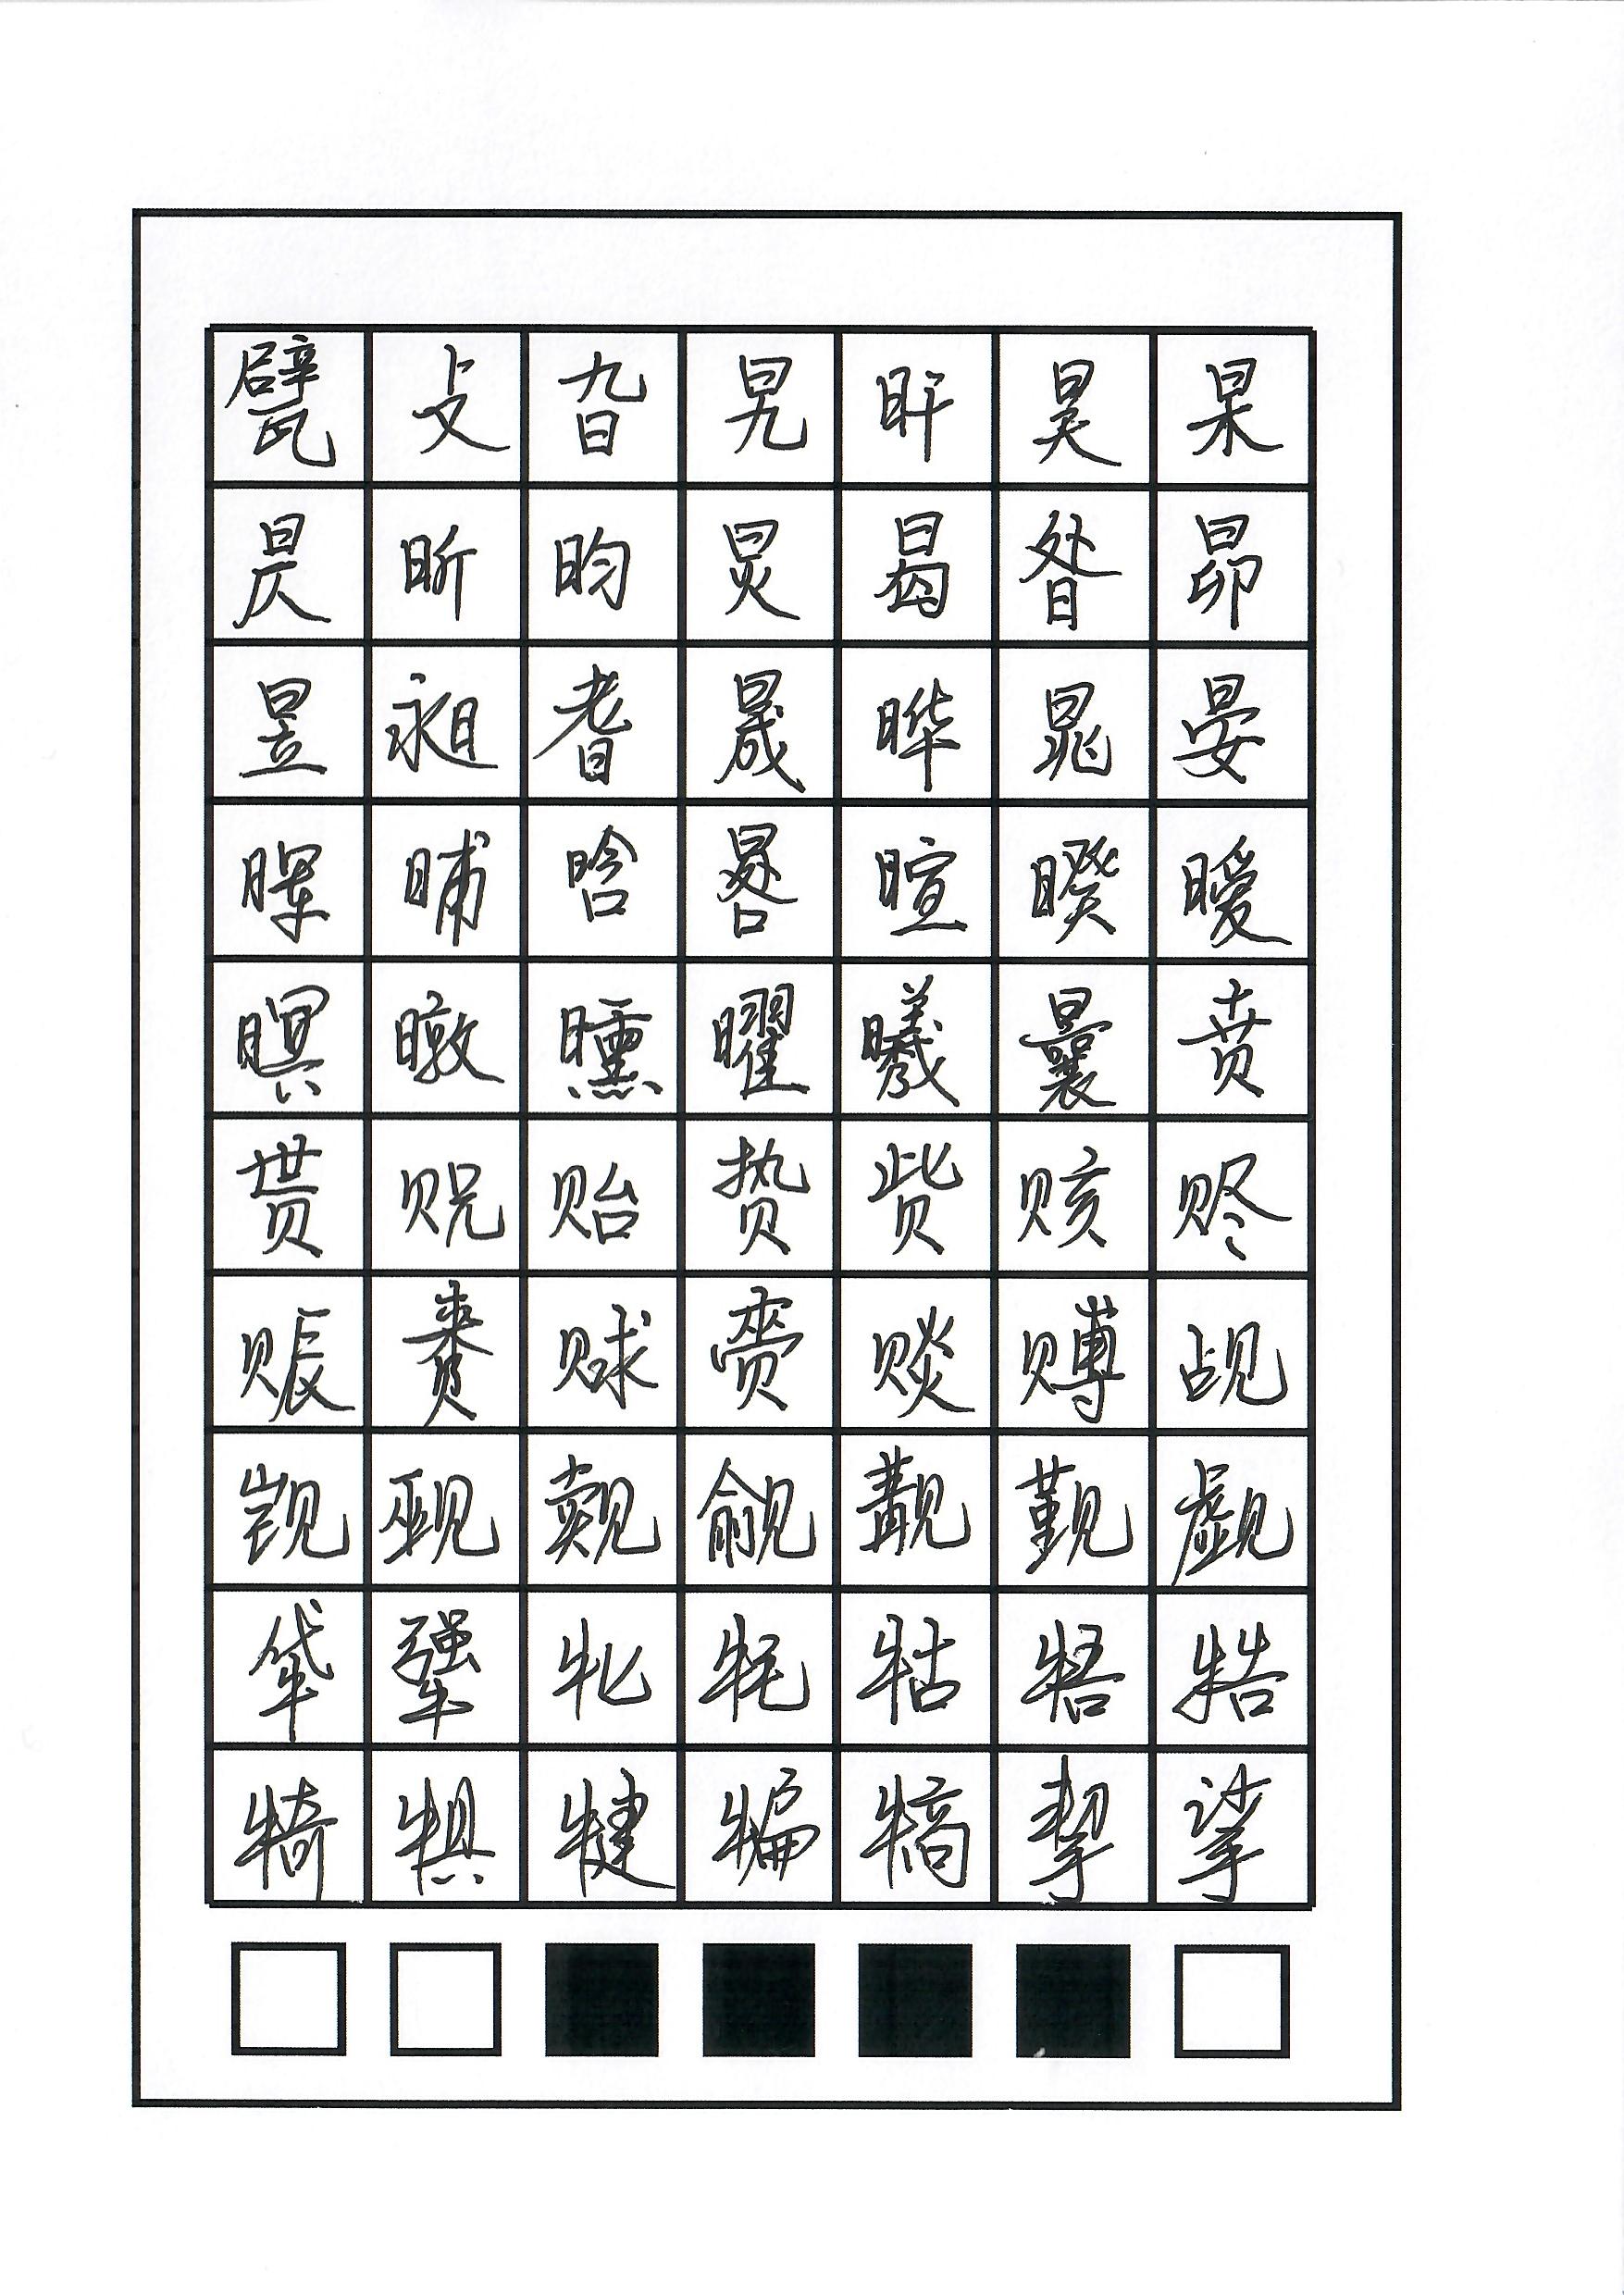 甓攴旮旯旰昊杲
昃昕昀炅曷昝昴
昱昶耆晟晔晁晏
晖晡晗晷暄暌暧
暝暾曛曜曦曩贲
贳贶贻贽赀赅赆
赈赉赇赍赕赙觇
觊觋觌觎觏觐觑
牮犟牝牦牯牾牿
犄犋犍犏犒挈挲